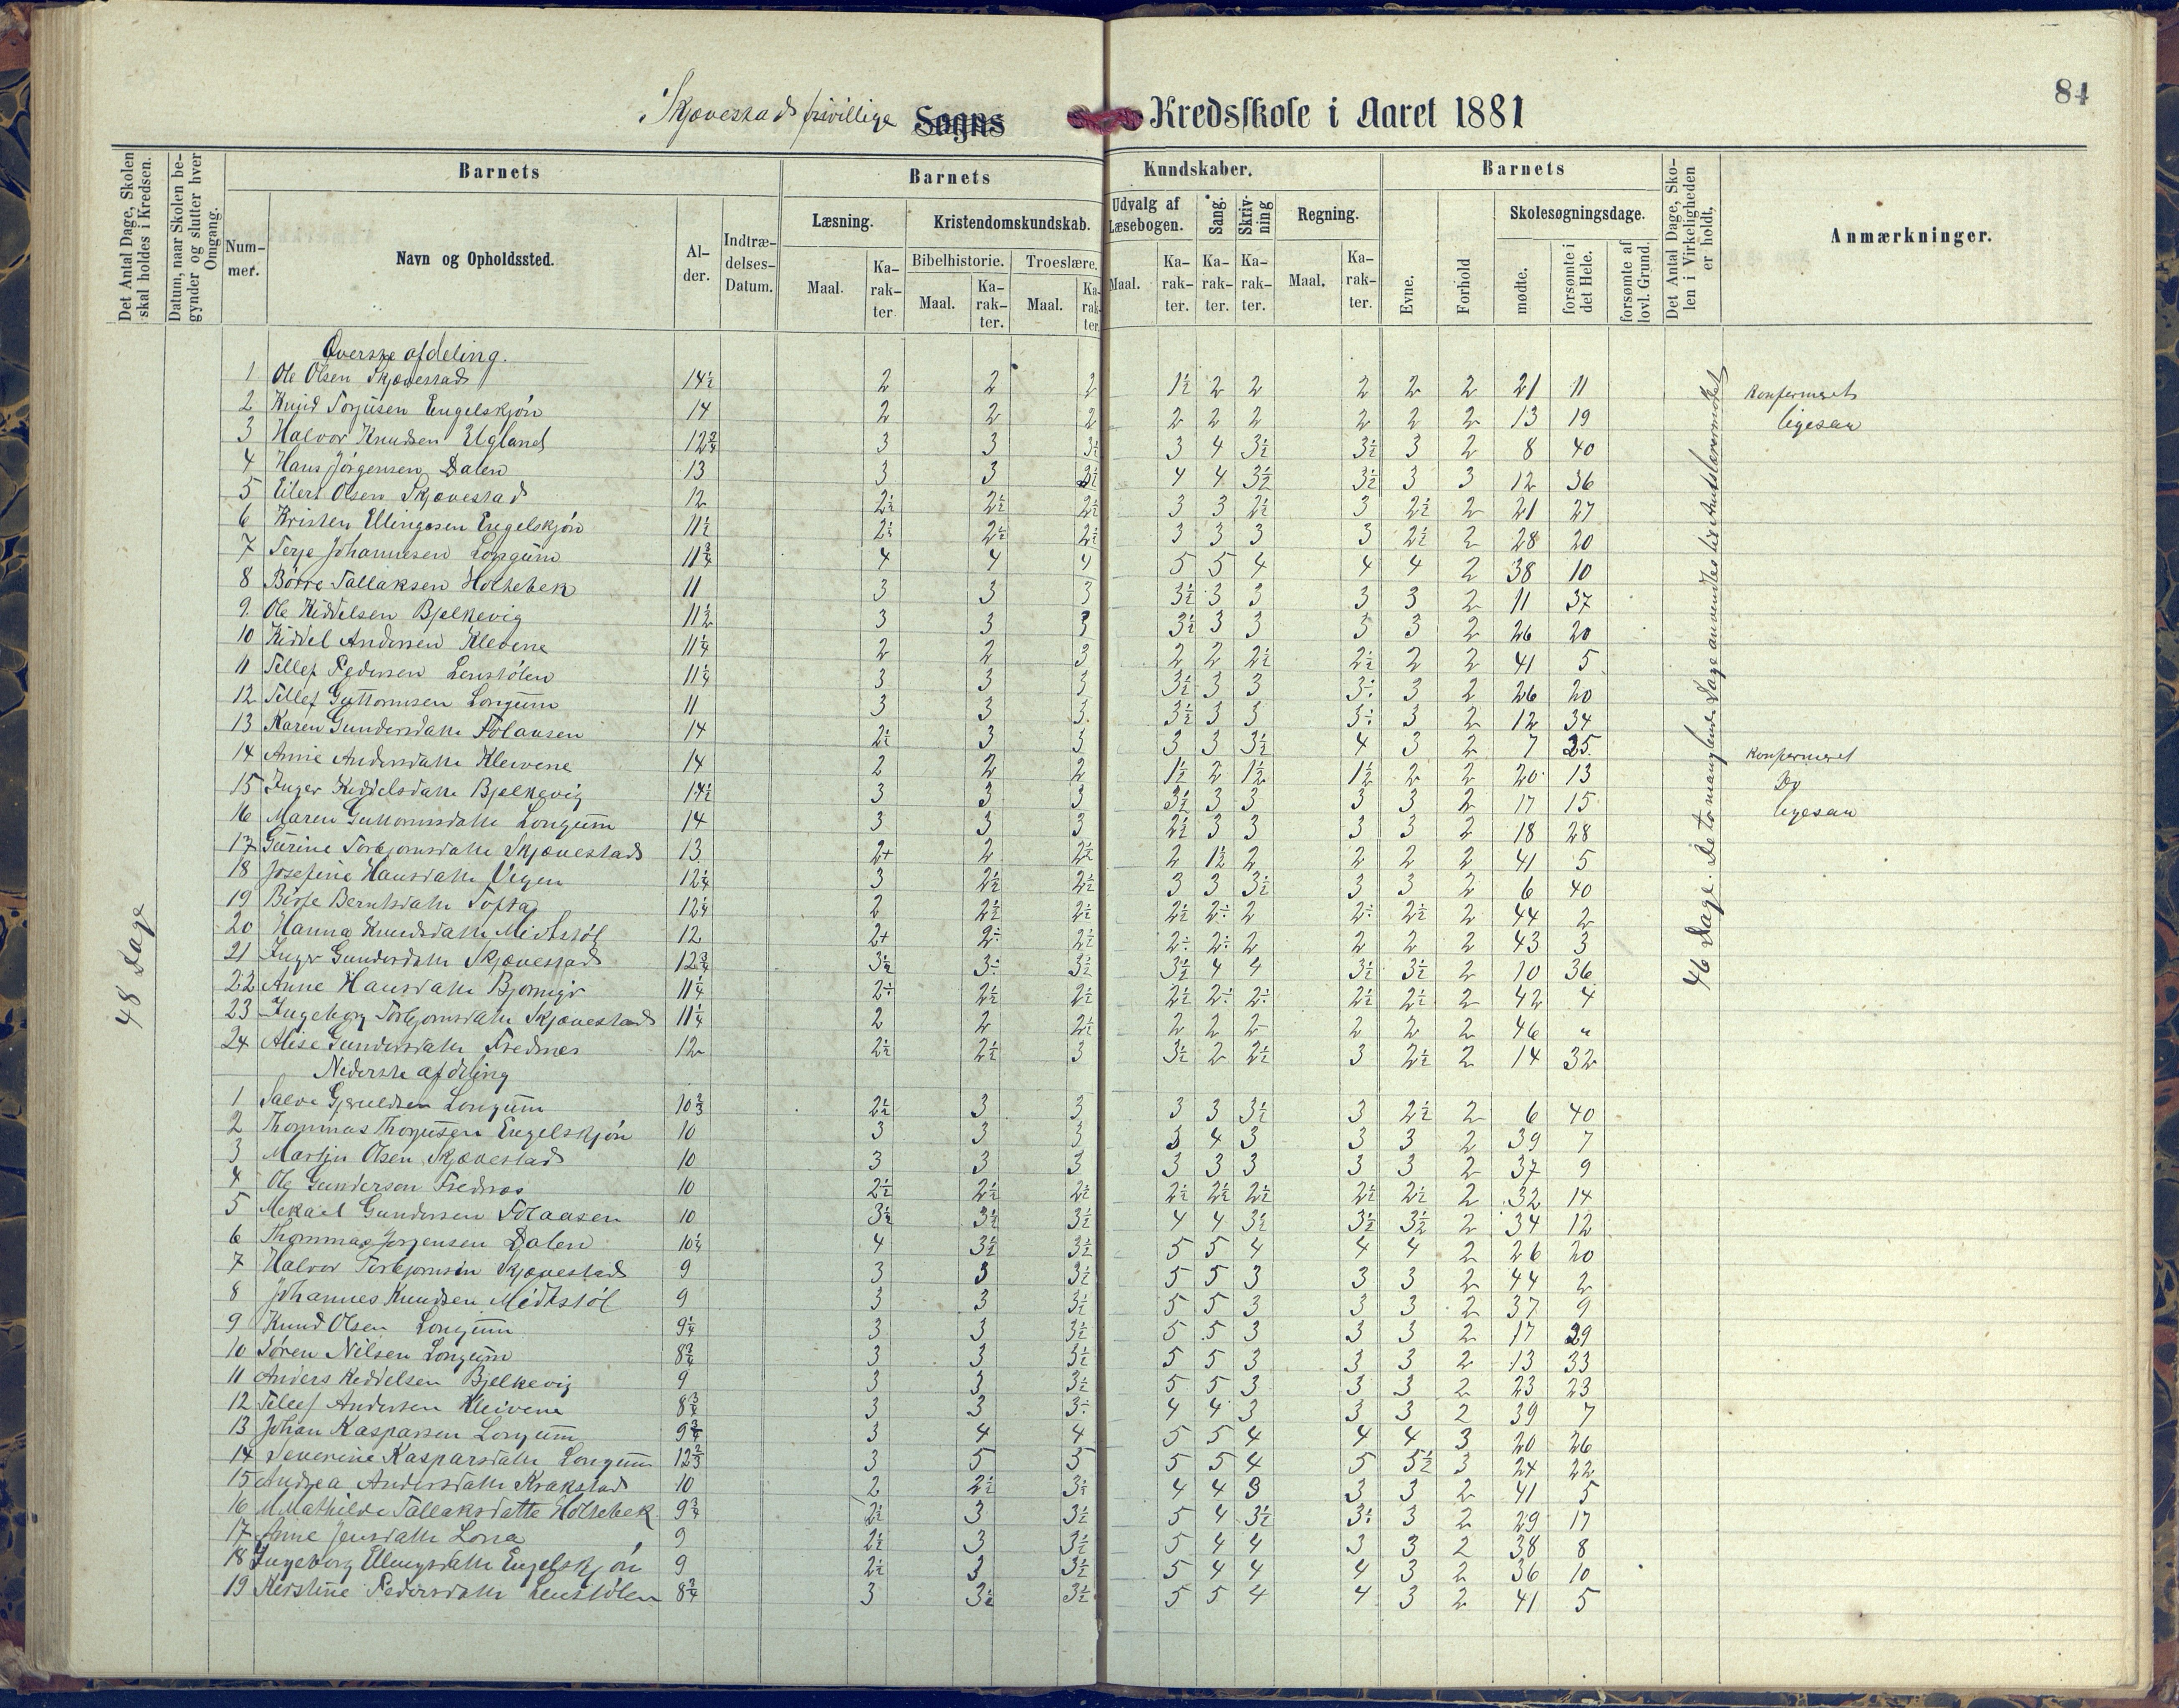 84
Skjævestads frivillige Sogns Kredsskole i Aaret 1881
Det Antal Dage, Skolen skal holdes i Kredsen.
Datum, naar Skolen begynder og slutter hver Omgang.
Barnets
Nummer.
Navn og Opholdssted.
Alder.
Indtrædelses-Datum.
Barnets Kundskaber.
Læsning.
Maal. Karakter
Kristendomskundskab.
Bibelhistorie. Maal. Karakter.
Troeslære. Maal. Karakter.
Udvalg af Læsebogen. Maal. Karakter.
Sang. Karakter.
Skrivning Karakter.
Regning. Maal. Karakter.
Barnets
Evne.
Forhold
Skolesøgningsdage.
mødte.
forsømte i det Hele.
forsømte af lovl. Grund.
Det Antal Dage, Skolen i Virkeligheden er holdt.
Anmærkninger.
48 Dage
46 Dage. De to manglende Dage anvendtes til Amtslærermødet
Øverste afdeling.
1 Ole Olsen Skjævestad 14½ 2 2 2 1½ 2 2 2 2 2 21 11 Konfirmeret
2 Knud Torjusen Engelskjön 14 2 2 2 2 2 2 2 2 2 13 19 ligesaa
3 Halvor Knudsen Ugland 12¾ 3 3 3½ 3 4 3½ 3½ 3 2 8 40
4 Hans Jörgensen Dalen 13 3 3 3½ 4 4 3½ 3½ 3 3 12 36
5 Eilert Olsen Skjævestad 12 2½ 2½ 2½ 3 3 2½ 3 2½ 2 21 27
6 Kristen Ellingsen Engelskjön 11½ 2½ 2½ 2½ 3 3 3 3 2½ 2 28 20
7 Terje Johannesen Longum 11¾ 4 4 4 5 5 4 4 4 2 38 10
8 Börre Tallaksen Holtebek 11 3 3 3 3½ 3 3 3 3 2 11 37
9 Ole Kiddelsen Bjelkevig 11½ 3 3 3 3½ 3 3 3 3 2 26 20
10 Kiddel Andersen Klevene 11¼ 2 2 3 2 2 2½ 2½ 2 2 41 5
11 Tellef Pedersen Lenstölen 11¼ 3 3 3 3½ 3 3 3÷ 3 2 26 20
12 Tellef Guttormsen Longum 11 3 3 3 3½ 3 3 3÷ 3 2 12 34
13 Karen Gundersdatte Solaasen 14 2½ 3 3 3 3 3½ 4 3 2 7 25
14 Anne Andersdatte Kleivene 14 2 2 2 1½ 2 1½ 1½ 2 2 20 13 Konfirmeret
15 Inger Kiddelsdatte Bjelkevig 14½ 3 3 3 3½ 3 3 3 3 2 17 15 Do
16 Maren Guttormsdatte Longum 14 3 3 3 2½ 3 3 3 3 2 18 28 ligesaa
17 Gurine Torbjornsdatte Skjævestad 13 2+ 2 2½ 2 1½ 2 2 2 2 41 5
18 Josefine Hansdatte Vegen 12¼ 3 2½ 2½ 3 3 3½ 3 3 2 6 40
19 Berntsdatte Tofta 12¼ 2 2½ 2½ 2½ 2÷ 2 2÷ 2½ 2 44 2
20 Hanna Knudsdatte Midtstöl 12 2+ 2÷ 2½ 2÷ 2÷ 2 2 2 2 43 3
21 Inger Gundersdatte Skjævestad 12¾ 3½ 3÷ 3½ 3½ 4 4 3½ 3½ 2 10 36
22 Anne Hansdatte 11¼ 2÷ 2½ 2½ 2½ 2÷ 2÷ 2½ 2½ 2 42 4
23 Ingeborg Torbjornsdatte Skjævestad 11¼ 2 2 2½ 2 2 2 2 2 2 46 "
24 Alise Gundersdatte Frednes 12 2½ 2½ 3 3½ 2 2½ 3 2½ 2 14 32
Nederste afdeling
1 Salve Gjeruldsen Longum 10⅔ 2½ 3 3 3 3 3½ 3 2½ 2 6 40
2 Thommas Thorjusen Engelskjön 10 3 3 3 3 4 3 3 3 2 39 7
3 Martin Olsen Skjævestad 10 3 3 3 3 3 3 3 3 2 37 9
4 Ole Gundersen Frednes 10 2½ 2½ 2½ 2½ 2½ 2½ 2½ 2½ 2 32 14
5 Mekael Gundersen Solaasen 10 3½ 3½ 3½ 4 4 3½ 3½ 3½ 2 34 12
6 Thommas Jorgensen Dalen 10¼ 4 3½ 3½ 5 5 4 4 4 2 26 20
7 Halvor Torbjornsen Skjævestad 9 3 3 3½ 5 5 3 3 3 2 44 2
8 Johannes Knudsen Midtstöl 9 3 3 3½ 5 5 3 3 3 2 37 9
9 Knud Olsen Longum 9¼ 3 3 3½ 5 5 3 3 3 2 17 29
10 Sören Nilsen Longum 8¾ 3 3 3½ 5 5 3 3 3 2 13 33
11 Anders Kiddelsen Bjelkevig 9 3 3 3½ 5 5 3 3 3 2 23 23
12 Tellef Andersen Kleivene 8¾ 3 3 3÷ 4 4 3 3 3 2 39 7
13 Johan Kasparsen Longum 9¾ 3 4 4 5 5 4 4 4 3 20 26
14 Severine Kasparsdatte Longum 12⅔ 3 5 5 5 5 4 5 5½ 3 24 22
15 Andrea Andersdatte Krakstad 10 2 2½ 3÷ 4 4 3 3 3 2 41 5
16 Mathilde Tallaksdatte Holtebek 9¾ 2½ 3 3½ 5 4 3½ 3÷ 3 2 29 17
17 Anne Jensdatte Lona 9 2½ 3 3½ 5 4 4 3 3 2 38 8
18 Ingeborg Ellingsdatte Engelskjön 9 2½ 3 3½ 5 4 4 4 3 2 36 10
19 Kerstine Pedersdatte Lenstölen 8¾ 3 3½ 3½ 5 5 4 4 3 2 41 5